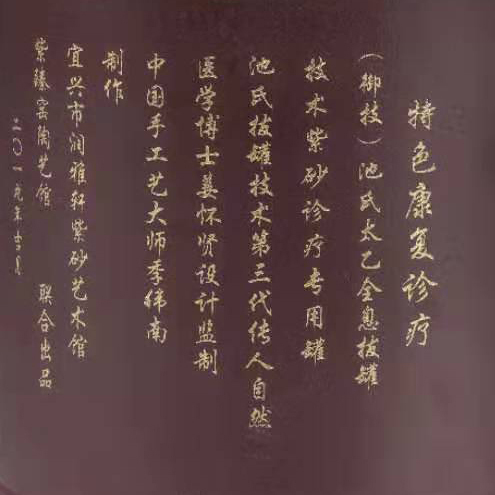 特色康复诊疗
（御技）池氏太乙全息拔罐
技术紫砂诊疗专用罐
池氏拔罐技术第三代传人自然
医学博士姜怀贤设计监制
中国手工艺大师季伟南
制作
宜兴市润雅轩紫砂艺术馆
紫臻窑陶艺馆 联合出品
二〇一九年